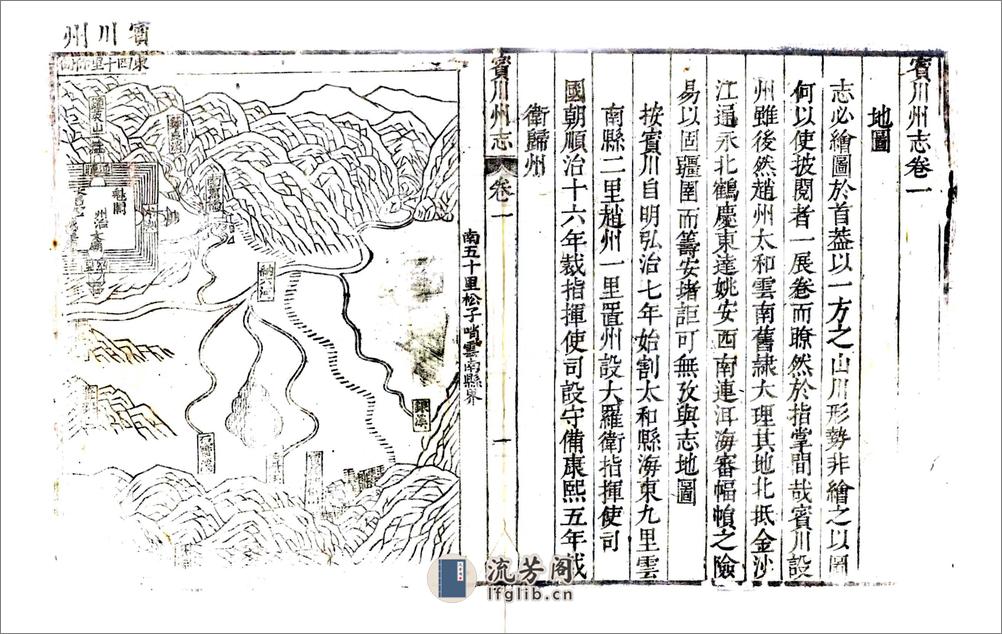 賓川州志卷一
地圖
志必繪圖於首葢以一方之山川形勢非繪之以圖
何以使披閱者一展卷而瞭然於指掌間哉賓川設
州雖後然趙州太和雲南舊隸大理其地北抵金沙
江逼永北鶴慶東達姚安西南連洱海審幅幀之險
易以固疆圉而籌安堵詎可無攷與志地圖
按賓川自明弘治七年始割太和縣海東九里雲
南縣二里趙州一里置州設大羅衛指揮使司
國朝順治十六年裁指揮使司設守備康熙五年裁
衛歸州
賓川州志
卷一
一
南五十里松子哨雲南縣界
賓川州
魁閣
州治
納溪
銀溪
流芳閣
lfglib.cn